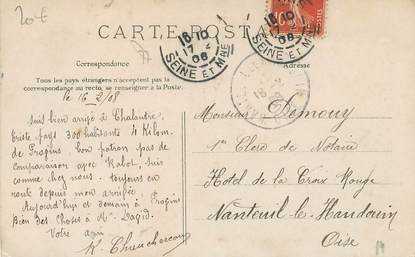 20 €
CARTE POSTALE
18 10
17 2
08
SEINE ET MNE
18 10
17 2
08
SEINE ET MNE
Correspondance
Adresse
Tous les pays étrangers n'acceptent pas la
correspondance au recto, se renseigner à la Poste.
le 16_2/08
suis bien arrivé à Chalautre
triste pays 300 habitants 4 Kilom.
de Provins bon patron pas de
comparaison avec Rabot, suis
comme chez nous. toujours en
route depuis mon arrivée,
Aujourd'hui et demain à Provins
Bien des Choses à Mr David.
Votre ami
Monsieur Demouy
1er Clerc de Notaire
Hotel de la Croix Rouge
Nanteuil-le-Haudouin
Oise